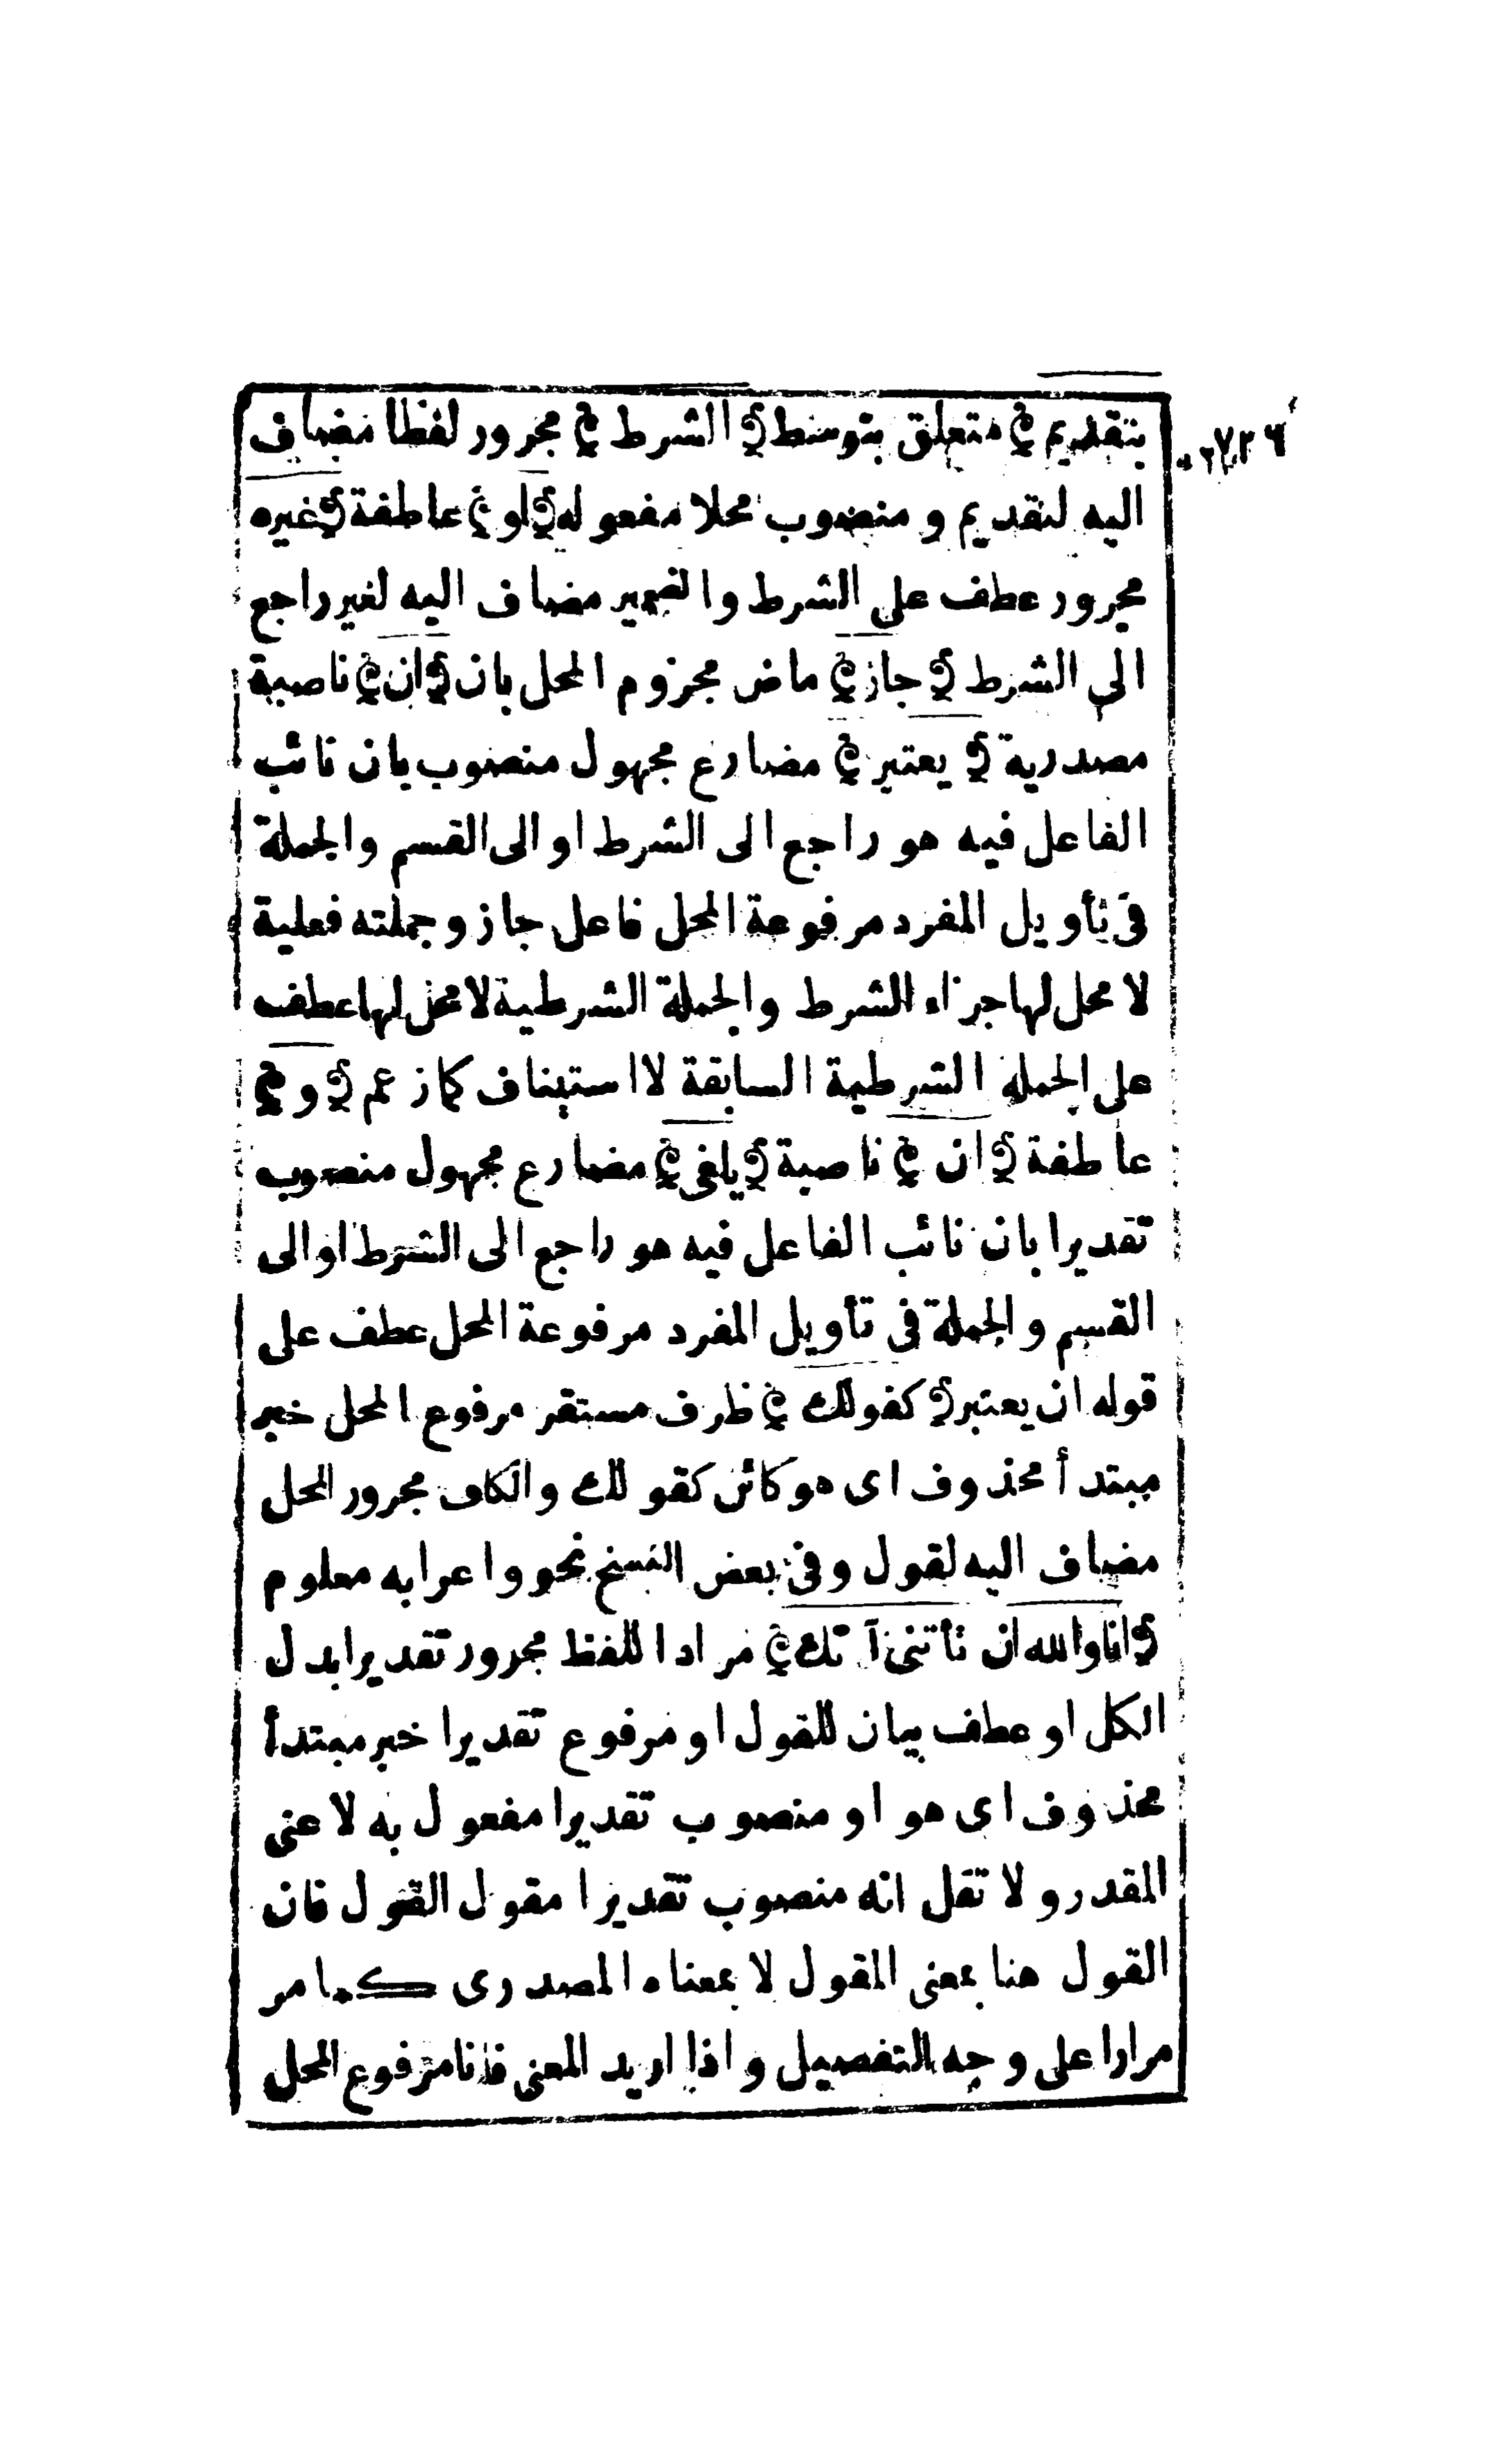 بتقديم ﴾ متعلق بتوسط ﴿ الشرط ﴾ مجرور لفظا مضاف
اليه لتقديم و منصوب محلا مفعوله ﴿ او ﴾ عاطفة ﴿ غيره
مجرور عطف على الشرط والضمير مضاف اليه لغير راجع
الى الشرط ﴿ جاز ﴾ ماض مجزوم المحل بان ﴿ ان ﴾ ناصبة
مصدرية ﴿ يعتبر ﴾ مضارع مجهول منصوب بان نائب
الفاعل فيه هو راجع الى الشرط او الى القسم والجملة
فى تأويل المفرد مرفوعة المحل فاعل جاز وجملته فعلية
لا محل لها جزاء الشرط والجملة الشرطية لا محل لها عطف
على الجملة الشرطية السابقة لا استيناف كما زعم ﴿ و ﴾
عاطفة ﴿ ان ﴾ ناصبة ﴿ يلغى ﴾ مضارع مجهول منصوب
تقديرا بان نائب الفاعل فيه هو راجع الى الشرط او الى
القسم والجملة فى تأويل المفرد مرفوعة المحل عطف على
قوله ان يعتبر ﴿ كقولك ﴾ ظرف مستقر مرفوع المحل خبر
مبتدأ محذوف اى هو كائن كقولك والكاف مجرور المحل
مضاف اليه لقول وفى بعض النسخ نحو واعرابه معلوم
﴿ انا والله ان تأتنى آتك ﴾ مرادا اللفظ مجرور تقديرا بدل
الكل او عطف بيان للقول او مرفوع تقديرا خبر مبتدأ
محذوف اى هو او منصوب تقديرا مفعول به لاعنى
المقدر ولا تقل انه منصوب تقديرا مقول القول فان
القول هنا بمعنى المقول لا بمعناه المصدرى كما مر
مرارا على وجه التفصيل واذا اريد المعنى فانا مرفوع المحل